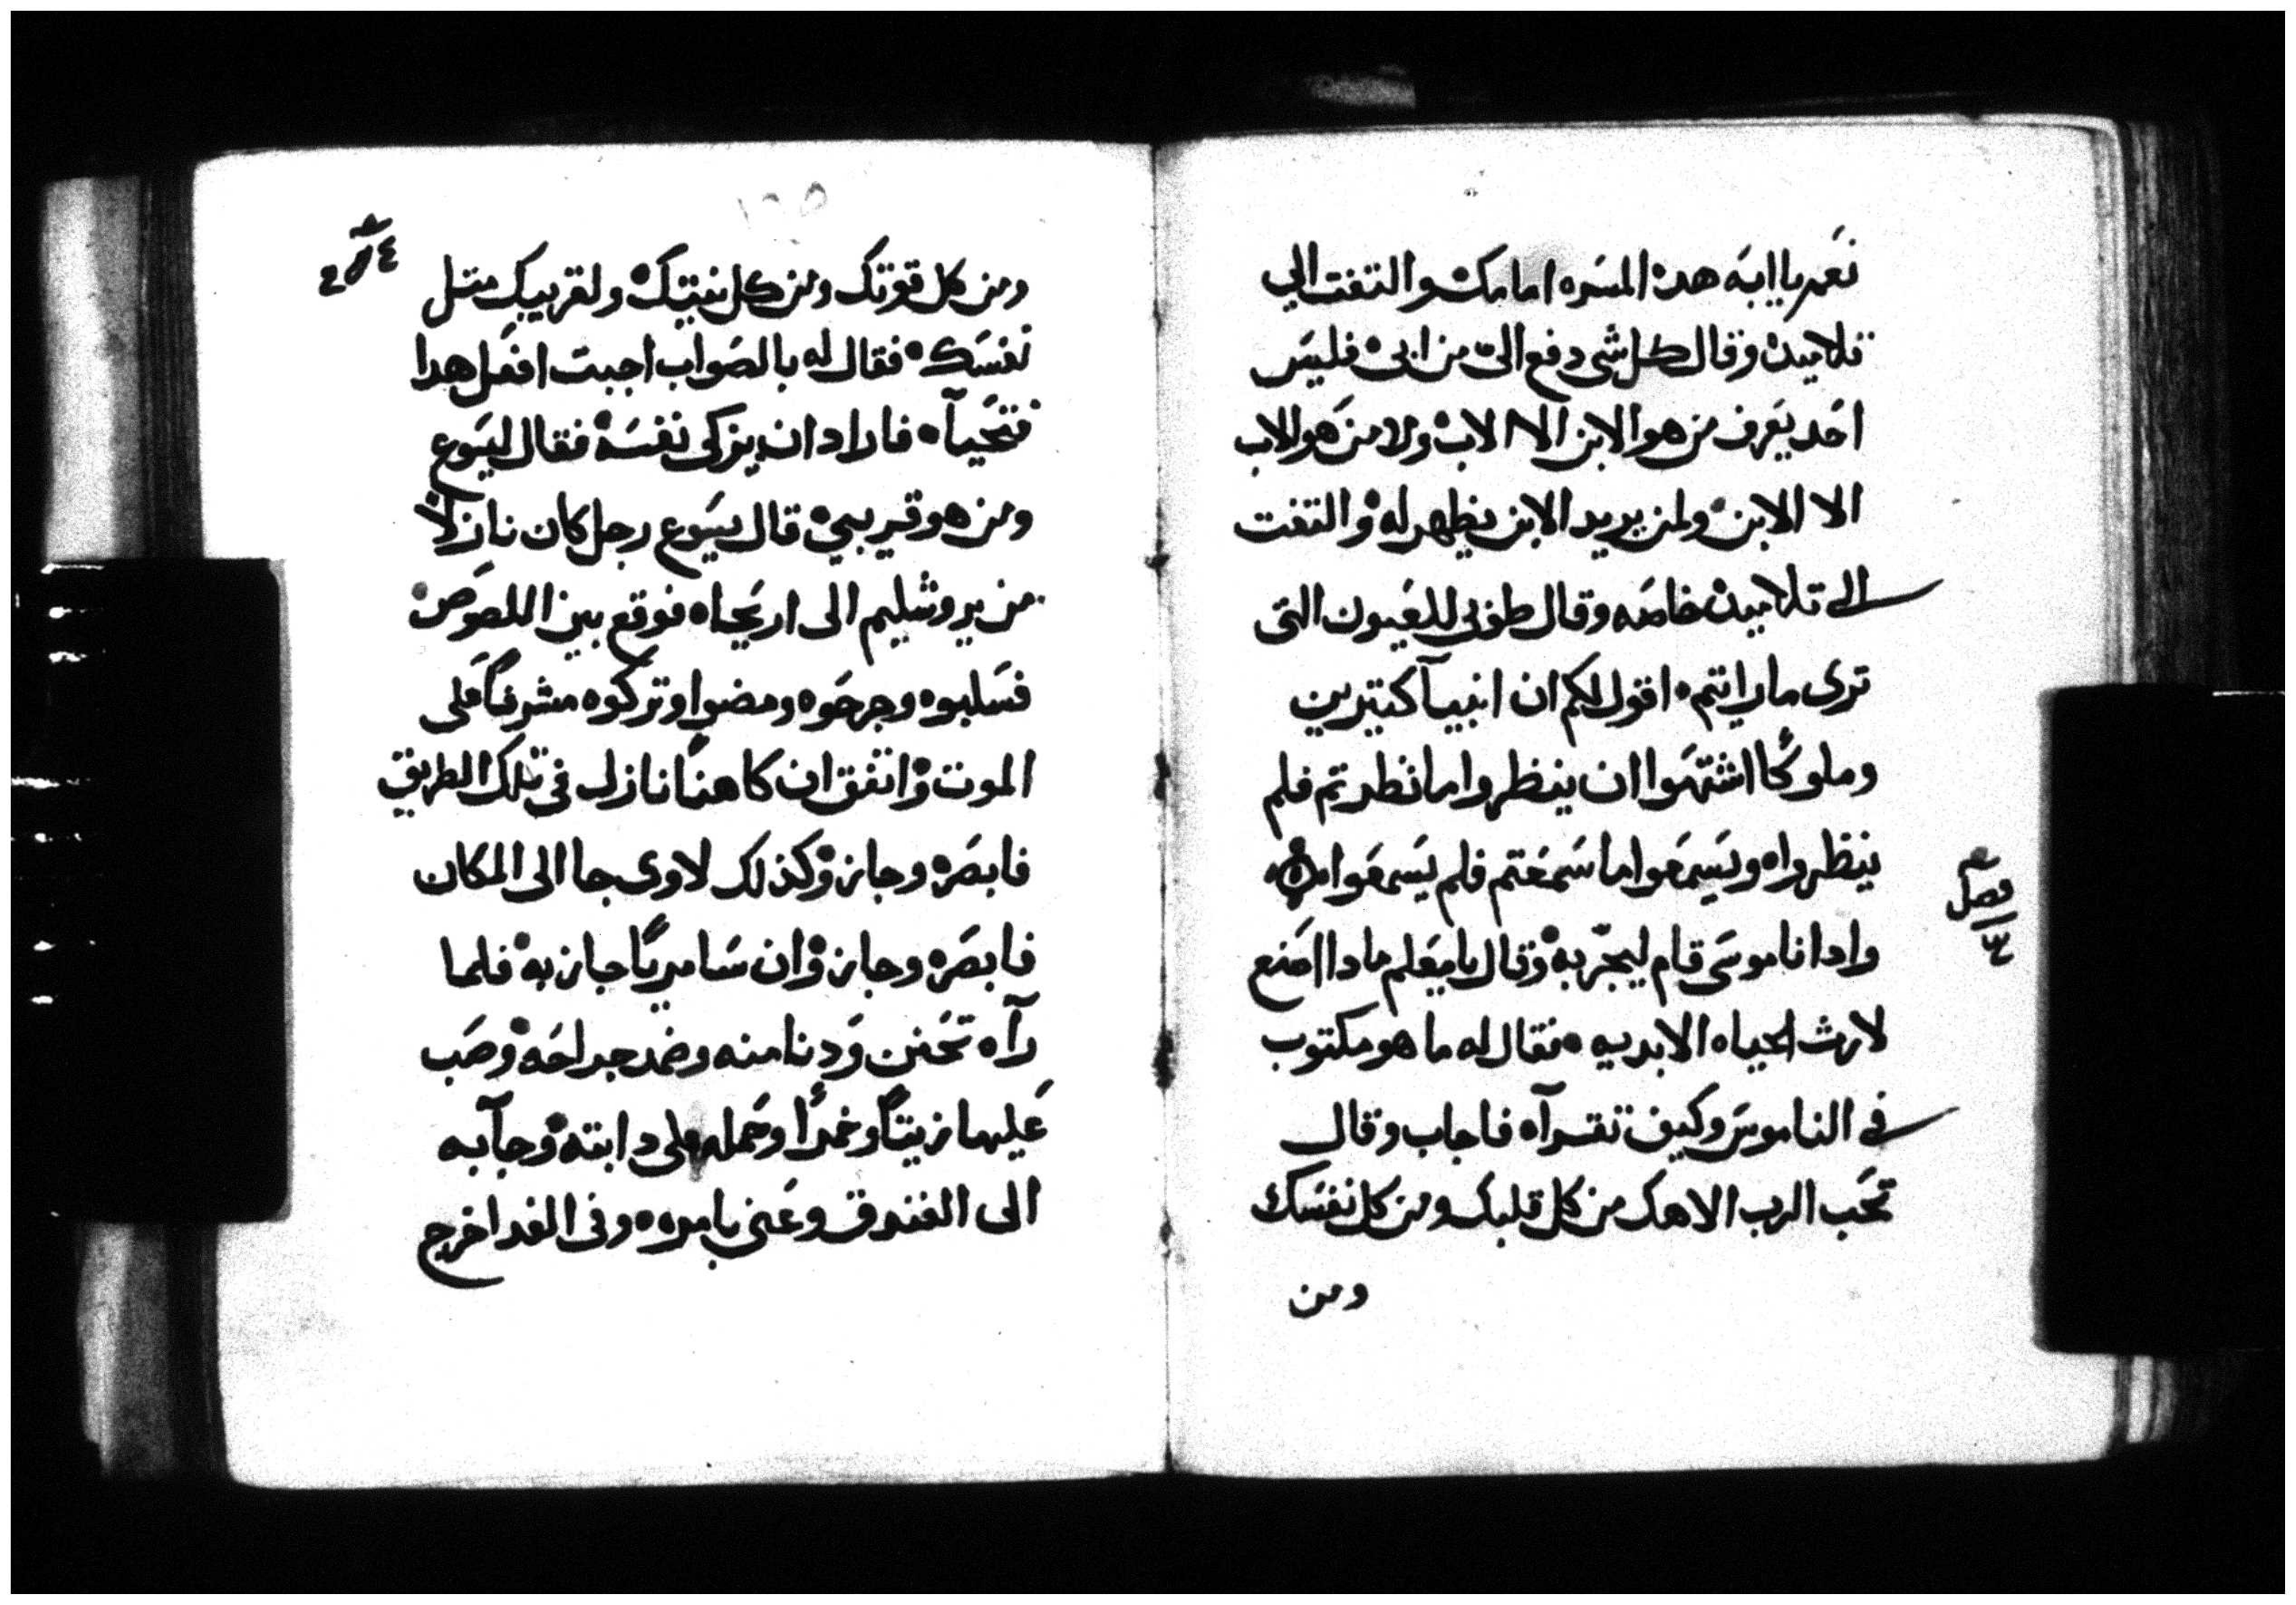 نعم يا ابه هده المسره امامك والتفت الي
تلاميده وقال كل شي دفع الي من ابي فليس
احد يعرف من هو الابن الا الاب ولا من هو الاب
الا الابن ولمن يريد الابن يظهر له والتفت
الي تلاميده خاصه وقال طوبي للعيون التي
تري ما رايتم اقول لكم ان انبيآ كتيرين
وملوكًا اشتهوا ان ينظروا ما نظرتم فلم
ينظروا ويسمعوا ما سمعتم فلم يسمعوا
فصل
وادا ناموسي قام ليجربه وقال يا معلم مادا اصنع
لارث الحياه الابديه فقال له ما هو مكتوب
في الناموس وكيف تقرآه فاجاب وقال
تحب الرب الاهك من كل قلبك ومن كل نفسك
ومن
ومن كل قوتك ومن كل نيتك ولقريبك متل
نفسك فقال له بالصواب اجبت افعل هدا
فتحيآ فاراد ان يزكي نفسه فقال ليسوع
ومن هو قريبي قال يسوع رجل كان نازلاً
من يروشليم الى اريحا فوقع بين اللصوص
فسلبوه وجرحوه ومضوا وتركوه مشرفًا على
الموت واتفق ان كاهنًا نازل في تلك الطريق
فابصره وجاز وكذلك لاوى جا الى المكان
فابصره وجاز وان سامريًا جاز به فلما
رآه تحنن ودنا منه وضمد جراحه وصب
عليها زيتًا وخمرًا وحمله على دابته وجآ به
الى الفندق وعنى بامره وفى الغد اخرج